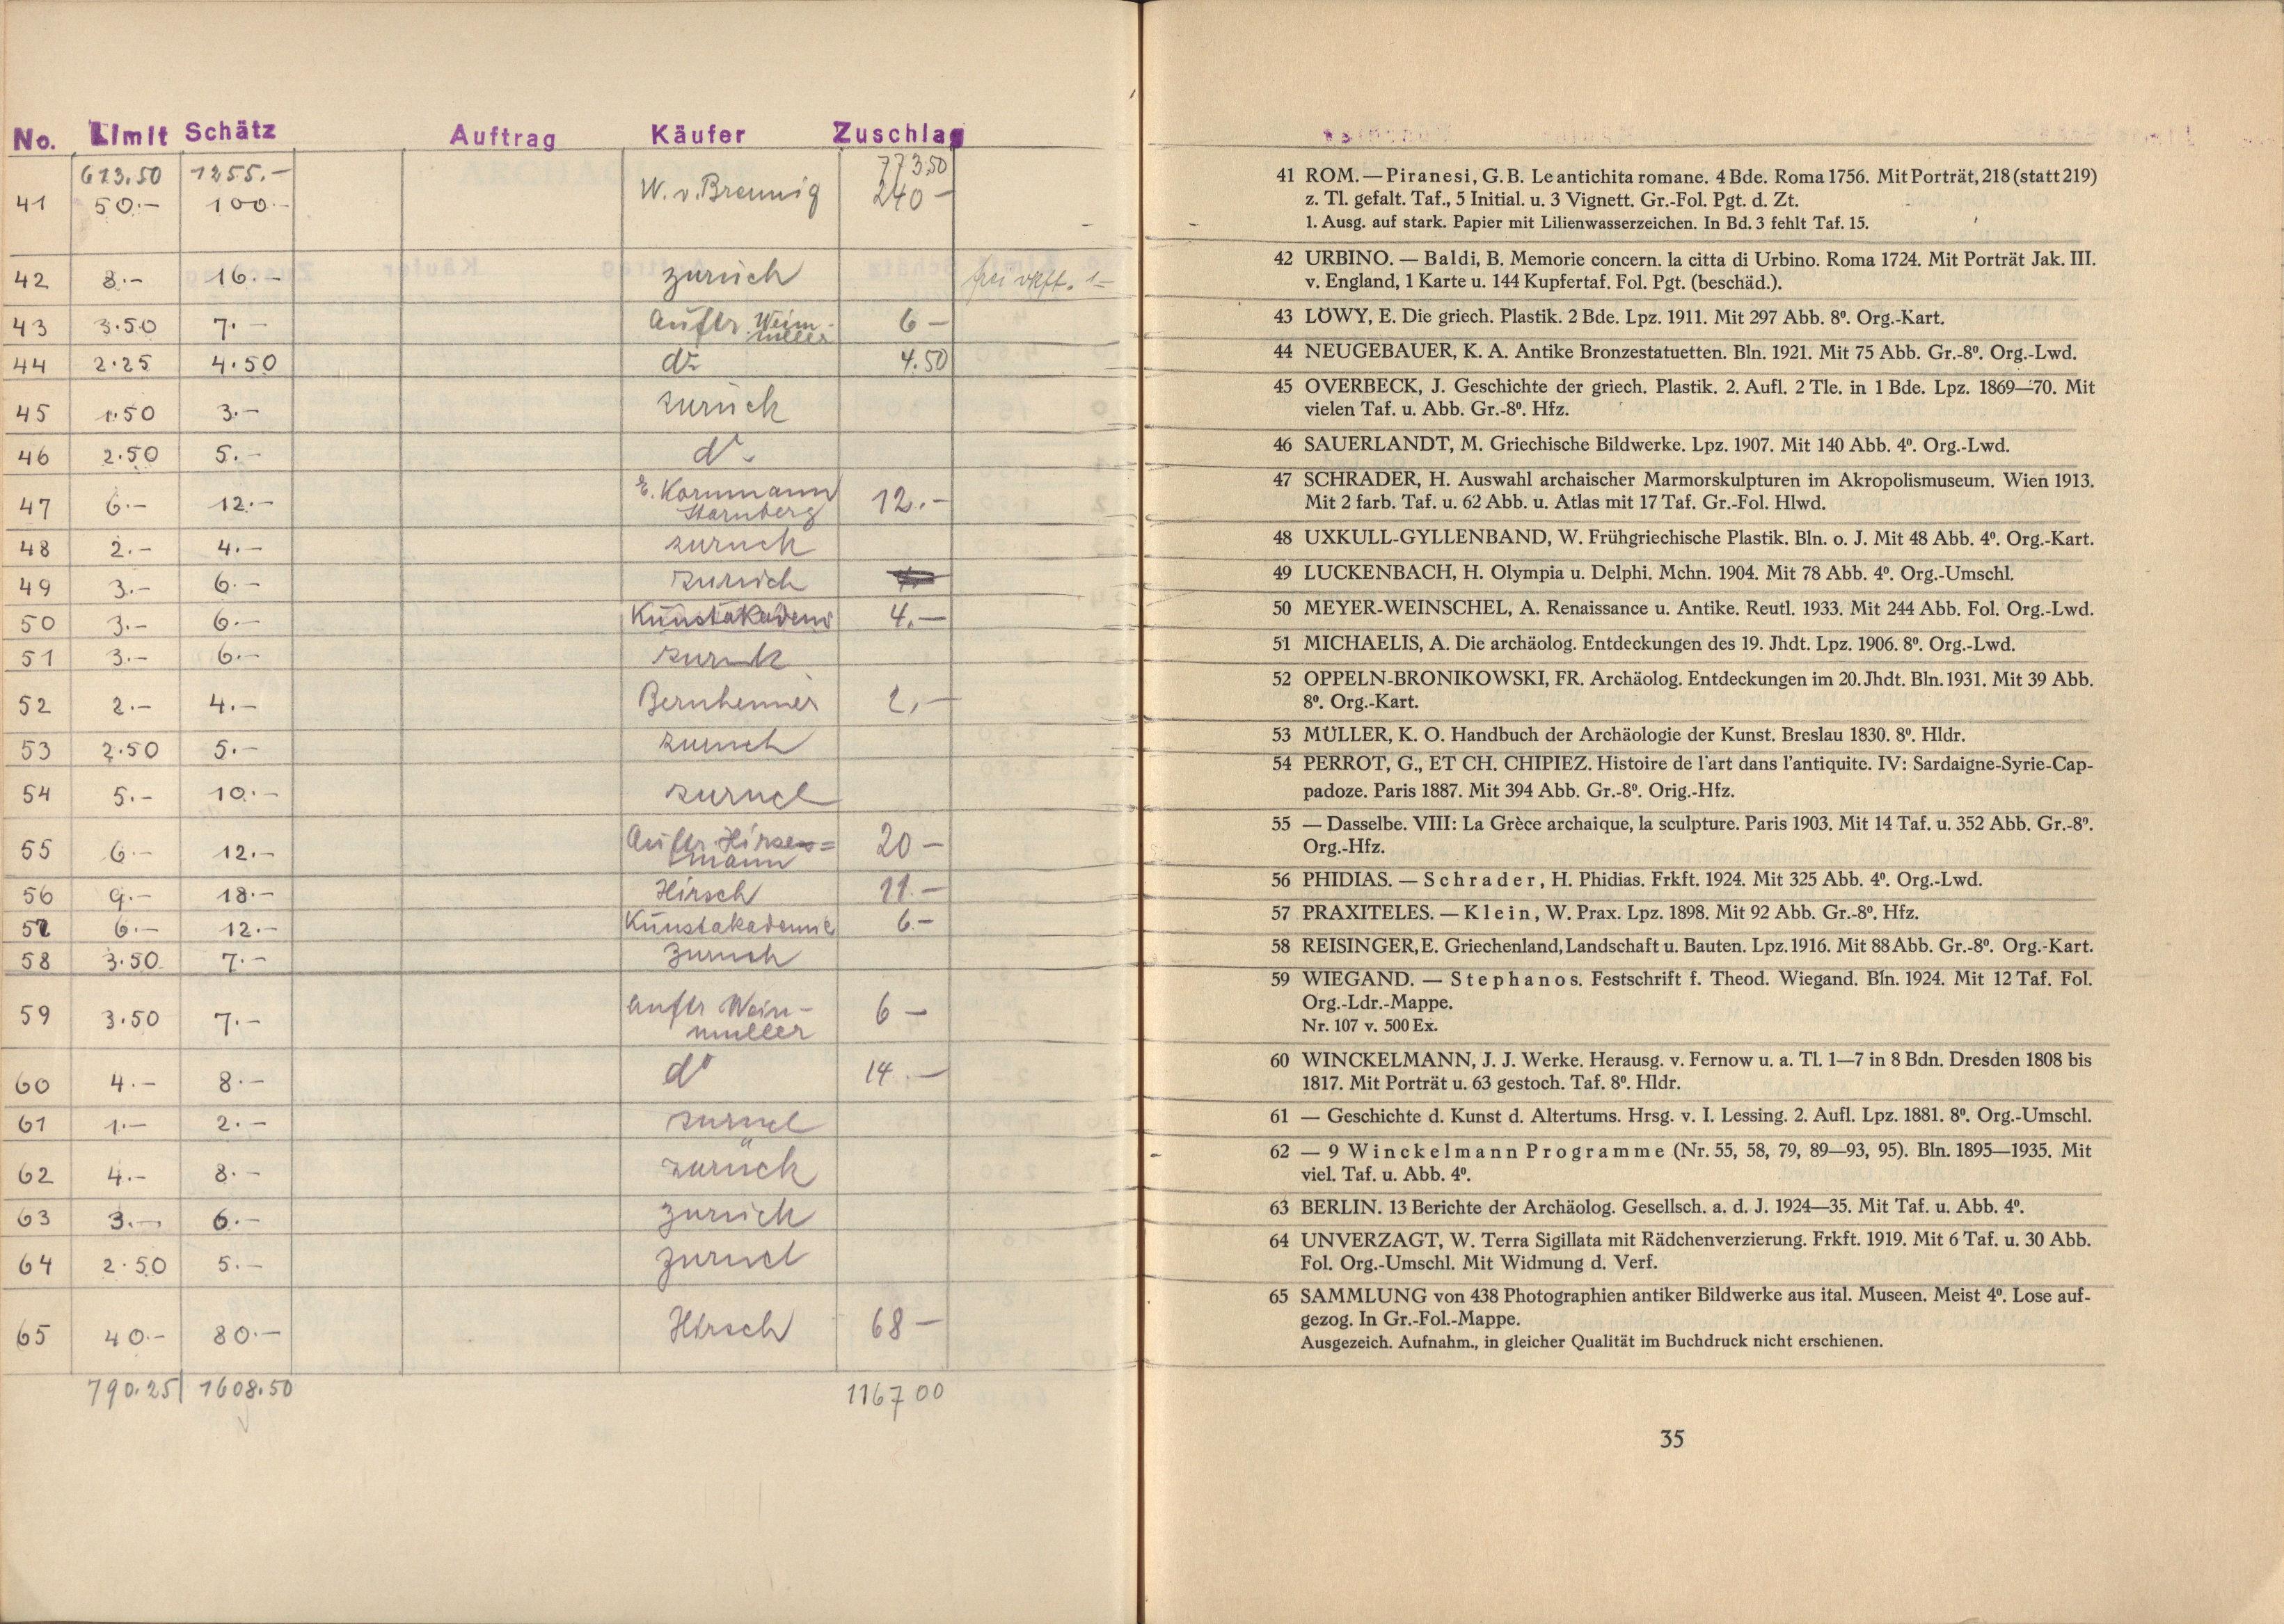 No. Limit Schätz Auftrag Käufer Zuschlag
613.50 1255.- 773.50
41 50.- 100.- W. v. Brennig 240 -
42 8.- 16.- zurück frei vkft. 1-
43 3.50 7.- Auftr. Wein-
müller 6 -
44 2.25 4.50 do 4.50
45 1.50 3.- zurück
46 2.50 5.- do
47 6.- 12.- E. Kornmann
Starnberg 12.-
48 2.- 4.- zurück
49 3.- 6.- zurück
50 3.- 6.- Kunstakadem 4.-
51 3.- 6.- zurück
52 2.- 4.- Bernheimer 2.-
53 2.50 5.- zurück
54 5.- 10.- zurück
55 6.- 12.- Auftr.
mann 20 -
56 9.- 18.- Hirsch 11.-
57 6.- 12.- Kunstakademie 6.-
58 3.50 7.- zurück
59 3.50 7.- Auftr Wein-
müller 6 -
60 4.- 8.- do 14.-
61 1.- 2.- zurück
62 4.- 8.- zurück
63 3.- 6.- zurück
64 2.50 5.- zurück
65 40.- 80.- Hirsch 68 -
790.25 1608.50 1167 00
41 ROM. — Piranesi, G. B. Le antichita romane. 4 Bde. Roma 1756. Mit Porträt, 218 (statt 219)
z. Tl. gefalt. Taf., 5 Initial. u. 3 Vignett. Gr.-Fol. Pgt. d. Zt.
1. Ausg. auf stark. Papier mit Lilienwasserzeichen. In Bd. 3 fehlt Taf. 15.
42 URBINO. — Baldi, B. Memorie concern. la citta di Urbino. Roma 1724. Mit Porträt Jak. III.
v. England, 1 Karte u. 144 Kupfertaf. Fol. Pgt. (beschäd.).
43 LÖWY, E. Die griech. Plastik. 2 Bde. Lpz. 1911. Mit 297 Abb. 8º. Org.-Kart.
44 NEUGEBAUER, K. A. Antike Bronzestatuetten. Bln. 1921. Mit 75 Abb. Gr.-8º. Org.-Lwd.
45 OVERBECK, J. Geschichte der griech. Plastik. 2. Aufl. 2 Tle. in 1 Bde. Lpz. 1869—70. Mit
vielen Taf. u. Abb. Gr.-8º. Hfz.
46 SAUERLANDT, M. Griechische Bildwerke. Lpz. 1907. Mit 140 Abb. 4º. Org.-Lwd.
47 SCHRADER, H. Auswahl archaischer Marmorskulpturen im Akropolismuseum. Wien 1913.
Mit 2 farb. Taf. u. 62 Abb. u. Atlas mit 17 Taf. Gr.-Fol. Hlwd.
48 UXKULL-GYLLENBAND, W. Frühgriechische Plastik. Bln. o. J. Mit 48 Abb. 4º. Org.-Kart.
49 LUCKENBACH, H. Olympia u. Delphi. Mchn. 1904. Mit 78 Abb. 4º. Org.-Umschl.
50 MEYER-WEINSCHEL, A. Renaissance u. Antike. Reutl. 1933. Mit 244 Abb. Fol. Org.-Lwd.
51 MICHAELIS, A. Die archäolog. Entdeckungen des 19. Jhdt. Lpz. 1906. 8º. Org.-Lwd.
52 OPPELN-BRONIKOWSKI, FR. Archäolog. Entdeckungen im 20. Jhdt. Bln. 1931. Mit 39 Abb.
8º. Org.-Kart.
53 MÜLLER, K. O. Handbuch der Archäologie der Kunst. Breslau 1830. 8º. Hldr.
54 PERROT, G., ET CH. CHIPIEZ. Histoire de l'art dans l'antiquite. IV: Sardaigne-Syrie-Cap-
padoze. Paris 1887. Mit 394 Abb. Gr.-8º. Orig.-Hfz.
55 — Dasselbe. VIII: La Grèce archaique, la sculpture. Paris 1903. Mit 14 Taf. u. 352 Abb. Gr.-8º.
Org.-Hfz.
56 PHIDIAS. — Schrader, H. Phidias. Frkft. 1924. Mit 325 Abb. 4º. Org.-Lwd.
57 PRAXITELES. — Klein, W. Prax. Lpz. 1898. Mit 92 Abb. Gr.-8º. Hfz.
58 REISINGER, E. Griechenland, Landschaft u. Bauten. Lpz. 1916. Mit 88 Abb. Gr.-8º. Org.-Kart.
59 WIEGAND. — Stephanos. Festschrift f. Theod. Wiegand. Bln. 1924. Mit 12 Taf. Fol.
Org.-Ldr.-Mappe.
Nr. 107 v. 500 Ex.
60 WINCKELMANN, J. J. Werke. Herausg. v. Fernow u. a. Tl. 1—7 in 8 Bdn. Dresden 1808 bis
1817. Mit Porträt u. 63 gestoch. Taf. 8º. Hldr.
61 — Geschichte d. Kunst d. Altertums. Hrsg. v. I. Lessing. 2. Aufl. Lpz. 1881. 8º. Org.-Umschl.
62 — 9 Winckelmann Programme (Nr. 55, 58, 79, 89—93, 95). Bln. 1895—1935. Mit
viel. Taf. u. Abb. 4º.
63 BERLIN. 13 Berichte der Archäolog. Gesellsch. a. d. J. 1924—35. Mit Taf. u. Abb. 4º.
64 UNVERZAGT, W. Terra Sigillata mit Rädchenverzierung. Frkft. 1919. Mit 6 Taf. u. 30 Abb.
Fol. Org.-Umschl. Mit Widmung d. Verf.
65 SAMMLUNG von 438 Photographien antiker Bildwerke aus ital. Museen. Meist 4º. Lose auf-
gezog. In Gr.-Fol.-Mappe.
Ausgezeich. Aufnahm., in gleicher Qualität im Buchdruck nicht erschienen.
35